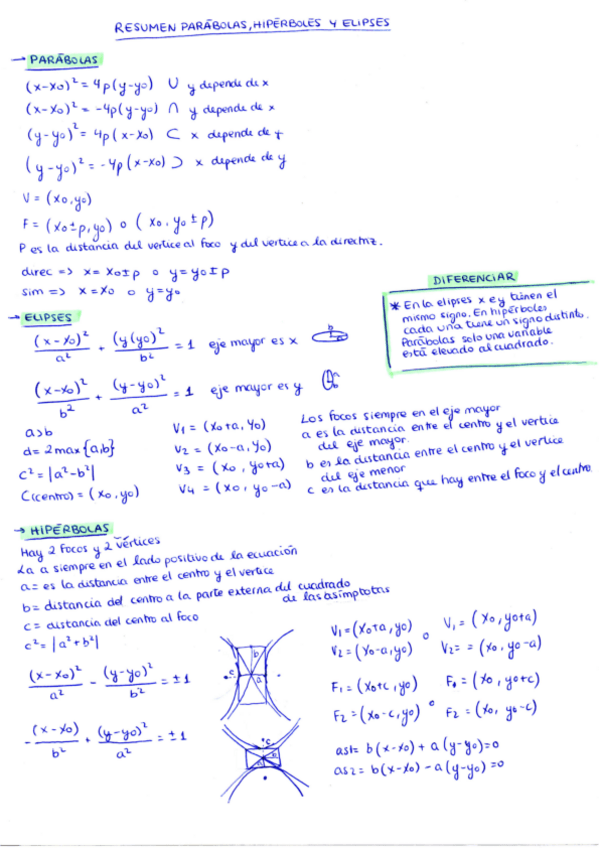 RESUMEN PARÁBOLAS, HIPÉRBOLES Y ELIPSES
→ PARÁBOLAS
(x-x0)² = 4p(y-y0) ∪ y depende de x
(x-x0)² = -4p(y-y0) ∩ y depende de x
(y-y0)² = 4p(x-x0) ⊂ x depende de y
(y-y0)² = -4p(x-x0) ⊃ x depende de y
V = (x0, y0)
F = (x0±p, y0) o (x0, y0±p)
P es la distancia del vertice al foco y del vertice a la directriz.
direc => x = x0±p o y = y0±p
sim => x = x0 o y = y0
DIFERENCIAR
* En la elipses x e y tienen el
mismo signo. En hipérboles
cada una tiene un signo distinto.
Parábolas solo una variable
está elevado al cuadrado.
→ ELIPSES
(x-x0)²/a² + (y(y0)²/b² = 1 eje mayor es x b
(x-x0)²/b² + (y-y0)²/a² = 1 eje mayor es y
a>b
d = 2max{a,b}
c² = |a²-b²|
C(centro) = (x0, y0)
V1 = (x0+a, y0)
V2 = (x0-a, y0)
V3 = (x0, y0+a)
V4 = (x0, y0-a)
Los focos siempre en el eje mayor
a es la distancia entre el centro y el vertice
del eje mayor.
b es la distancia entre el centro y el vertice
del eje menor
c es la distancia que hay entre el foco y el centro
→ HIPÉRBOLAS
Hay 2 focos y 2 vértices
La a siempre en el lado positivo de la ecuación
a = es la distancia entre el centro y el vertice
b = distancia del centro a la parte externa del cuadrado
de las asímptotas
c = distancia del centro al foco
c² = |a²+b²|
(x-x0)²/a² - (y-y0)²/b² = ±1
-(x-x0)/b² + (y-y0)²/a² = ±1
b
c
a
c
b
a
V1 = (x0+a, y0) o V1 = (x0, y0+a)
V2 = (x0-a, y0) V2 = = (x0, y0-a)
F1 = (x0+c, y0) o F1 = (x0, y0+c)
F2 = (x0-c, y0) F2 = (x0, y0-c)
as1 = b(x-x0) + a(y-y0) = 0
as2 = b(x-x0) - a(y-y0) = 0